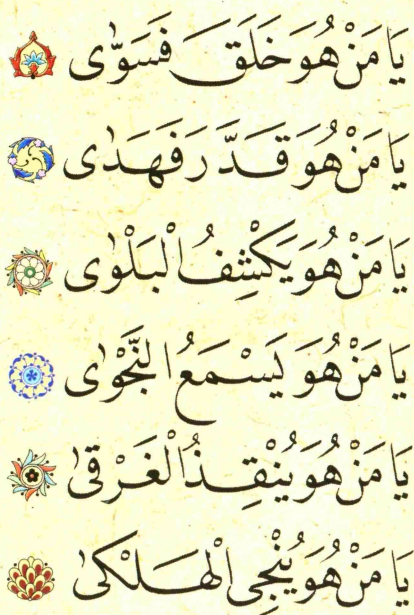 يَا مَنْ هُوَ خَلَقَ فَسَوّٰى
يَا مَنْ هُوَ قَدَّرَ فَهَدٰى
يَا مَنْ هُوَ يَكْشِفُ الْبَلْوٰى
يَا مَنْ هُوَ يَسْمَعُ النَّجْوٰى
يَا مَنْ هُوَ يُنْقِذُ الْغَرْقٰى
يَا مَنْ هُوَ يُنْجِى الْهَلْكٰى